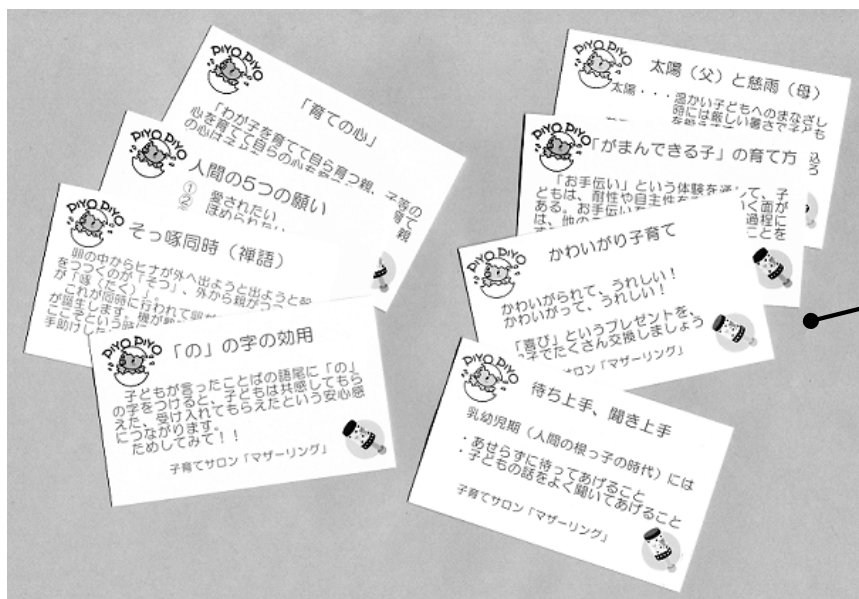 PIYO PIYO
「育ての心」
「わが子を育てて自ら育つ親、子等の
心を育てて自らの心を
の心は子
育て
親
PIYO PIYO
人間の5つの願い
① 愛されたい
② ほめられたい
PIYO PIYO
そっ啄同時(禅語)
卵の中からヒナが外へ出ようと出ようと殻
をつつくのが「そつ」、外から親がつつ
が「啄(たく)」。
これが同時に行われて卵が
が誕生します。機が熟
ここぞという時に
手助けし
PIYO PIYO
「の」の字の効用
子どもが言ったことばの語尾に「の」
の字をつけると、子どもは共感してもら
えた、受け入れてもらえたという安心感
につながります。
ためしてみて!!
子育てサロン「マザーリング」
PIYO PIYO
太陽(父)と慈雨(母)
太陽・・・温かい子どもへのまなざし
時には厳しい暑さで子ども
PIYO PIYO
「がまんできる子」の育て方
「お手伝い」という体験を通して、子
どもは、耐性や自主性を
いく面が
ある。お手伝い
過程に
は、他の
ことを
PIYO PIYO
かわいがり子育て
かわいがられて、うれしい!
かわいがって、うれしい!
「喜び」というプレゼントを、
子でたくさん交換しましょう
サロン「マザーリング」
PIYO PIYO
待ち上手、聞き上手
乳幼児期(人間の根っ子の時代)には
・あせらずに待ってあげること
・子どもの話をよく聞いてあげること
子育てサロン「マザーリング」